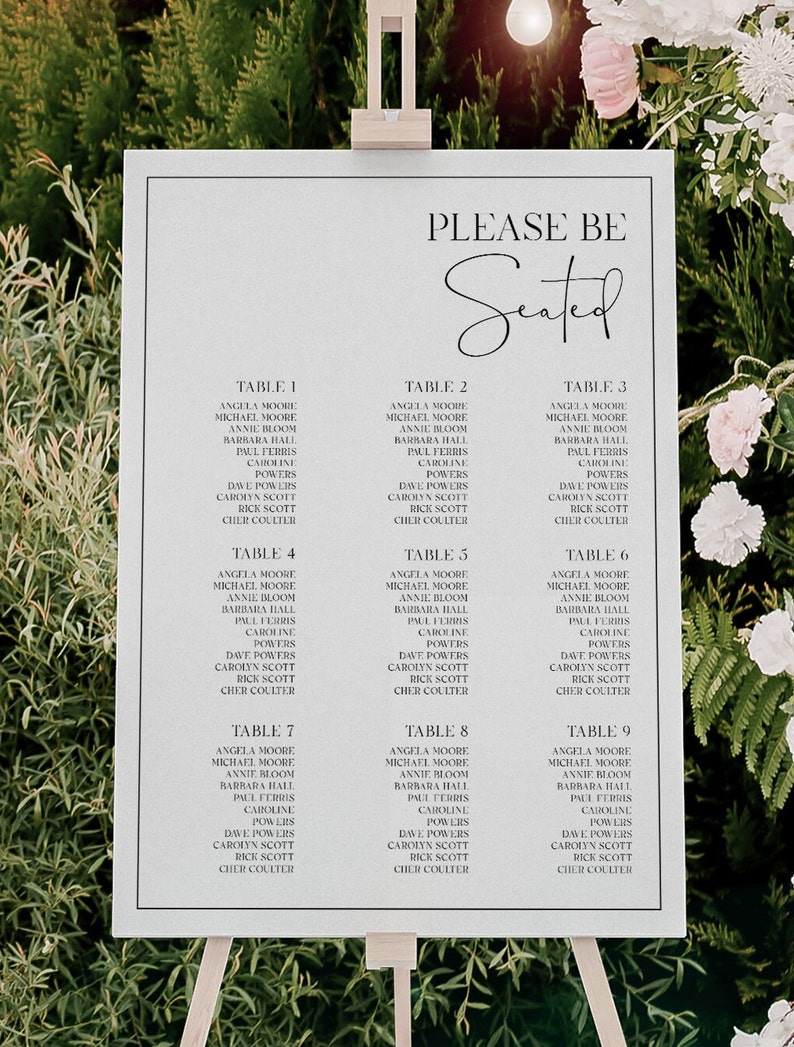 PLEASE BE
Seated
TABLE 1
ANGELA MOORE
MICHAEL MOORE
ANNIE BLOOM
BARBARA HALL
PAUL FERRIS
CAROLINE
POWERS
DAVE POWERS
CAROLYN SCOTT
RICK SCOTT
CHER COULTER
TABLE 2
ANGELA MOORE
MICHAEL MOORE
ANNIE BLOOM
BARBARA HALL
PAUL FERRIS
CAROLINE
POWERS
DAVE POWERS
CAROLYN SCOTT
RICK SCOTT
CHER COULTER
TABLE 3
ANGELA MOORE
MICHAEL MOORE
ANNIE BLOOM
BARBARA HALL
PAUL FERRIS
CAROLINE
POWERS
DAVE POWERS
CAROLYN SCOTT
RICK SCOTT
CHER COULTER
TABLE 4
ANGELA MOORE
MICHAEL MOORE
ANNIE BLOOM
BARBARA HALL
PAUL FERRIS
CAROLINE
POWERS
DAVE POWERS
CAROLYN SCOTT
RICK SCOTT
CHER COULTER
TABLE 5
ANGELA MOORE
MICHAEL MOORE
ANNIE BLOOM
BARBARA HALL
PAUL FERRIS
CAROLINE
POWERS
DAVE POWERS
CAROLYN SCOTT
RICK SCOTT
CHER COULTER
TABLE 6
ANGELA MOORE
MICHAEL MOORE
ANNIE BLOOM
BARBARA HALL
PAUL FERRIS
CAROLINE
POWERS
DAVE POWERS
CAROLYN SCOTT
RICK SCOTT
CHER COULTER
TABLE 7
ANGELA MOORE
MICHAEL MOORE
ANNIE BLOOM
BARBARA HALL
PAUL FERRIS
CAROLINE
POWERS
DAVE POWERS
CAROLYN SCOTT
RICK SCOTT
CHER COULTER
TABLE 8
ANGELA MOORE
MICHAEL MOORE
ANNIE BLOOM
BARBARA HALL
PAUL FERRIS
CAROLINE
POWERS
DAVE POWERS
CAROLYN SCOTT
RICK SCOTT
CHER COULTER
TABLE 9
ANGELA MOORE
MICHAEL MOORE
ANNIE BLOOM
BARBARA HALL
PAUL FERRIS
CAROLINE
POWERS
DAVE POWERS
CAROLYN SCOTT
RICK SCOTT
CHER COULTER